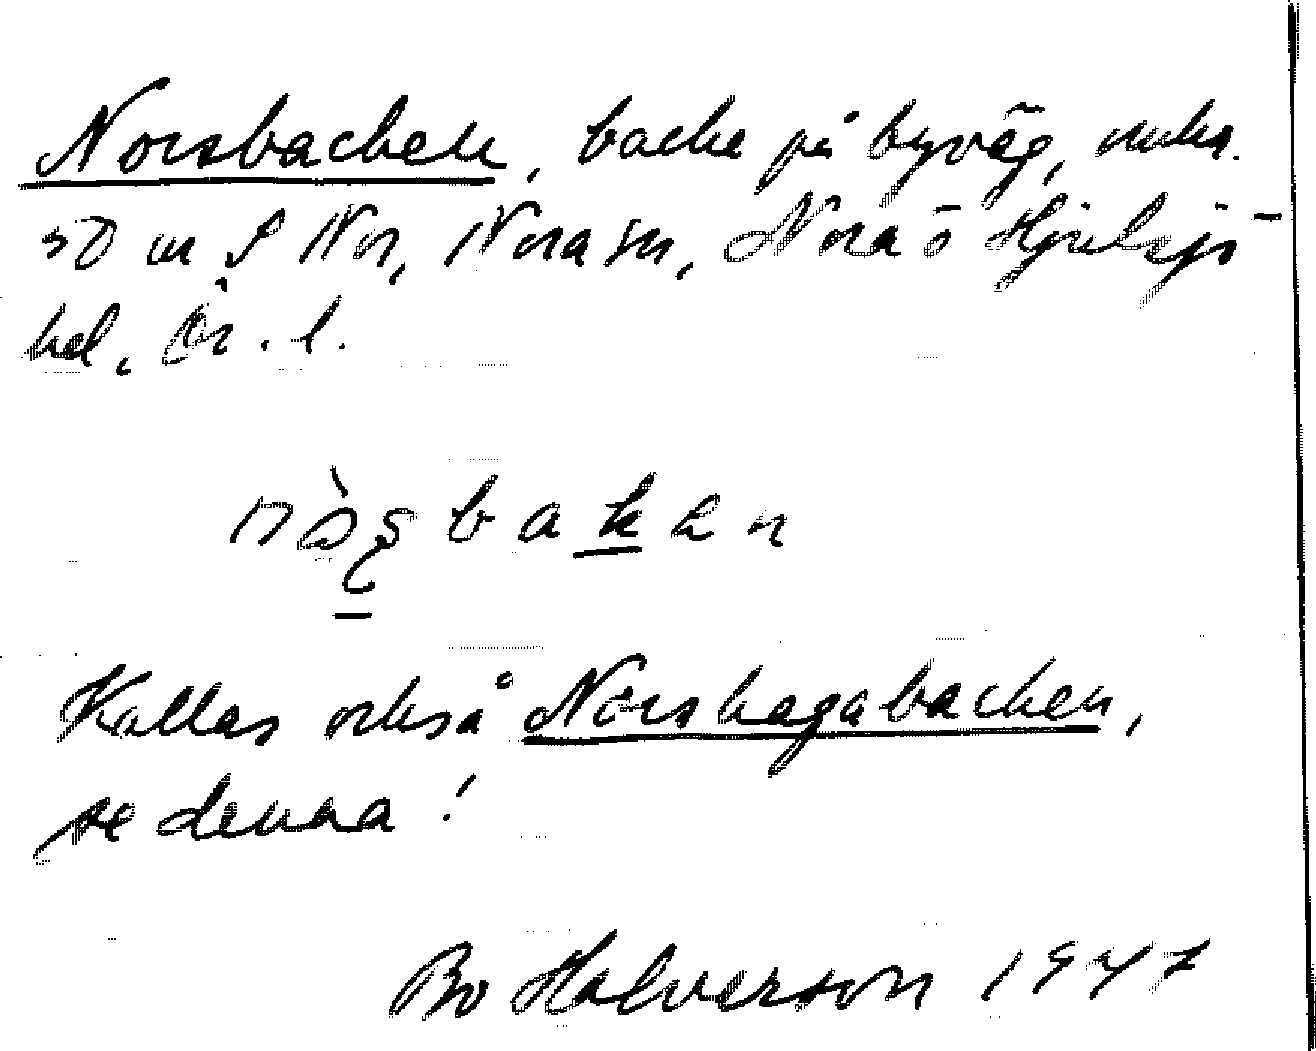 Norsbacken, backe på byväg, unka.
50 m S Nor, Nora sn, Nora o Hjulsjö
bel, Ör. l.
nò̱ʂbaḵan
Kallas också Norshagabacken,
se denna!
Bo Halverson 1947